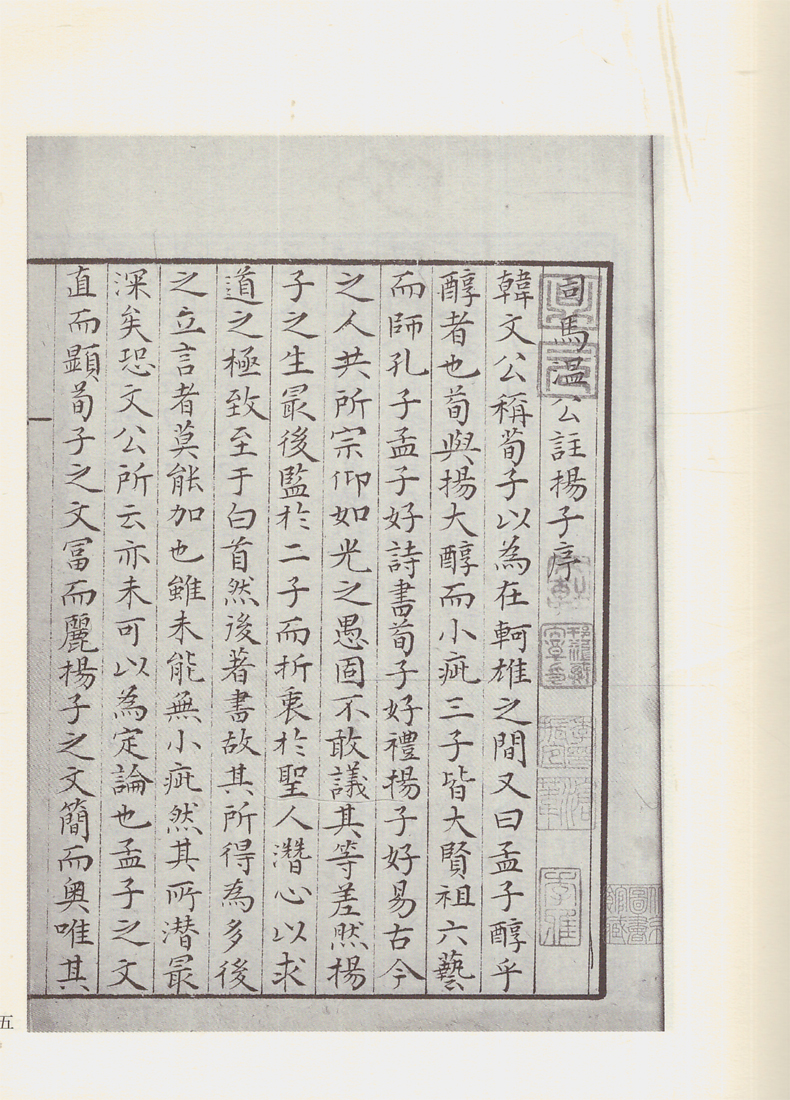 司馬温公註揚子序
韓文公稱荀子以為在軻雄之間又曰孟子醇乎
醇者也荀與揚大醇而小疵三子皆大賢祖六藝
而師孔子孟子好詩書荀子好禮揚子好易古今
之人共所宗仰如光之愚固不敢議其等差然揚
子之生最後監於二子而折衷於聖人潛心以求
道之極致至于白首然後著書故其所得為多後
之立言者莫能加也雖未能無小疵然其所潜最
深矣恐文公所云亦未可以為定論也孟子之文
直而顯荀子之文冨而麗揚子之文簡而奥唯其
五